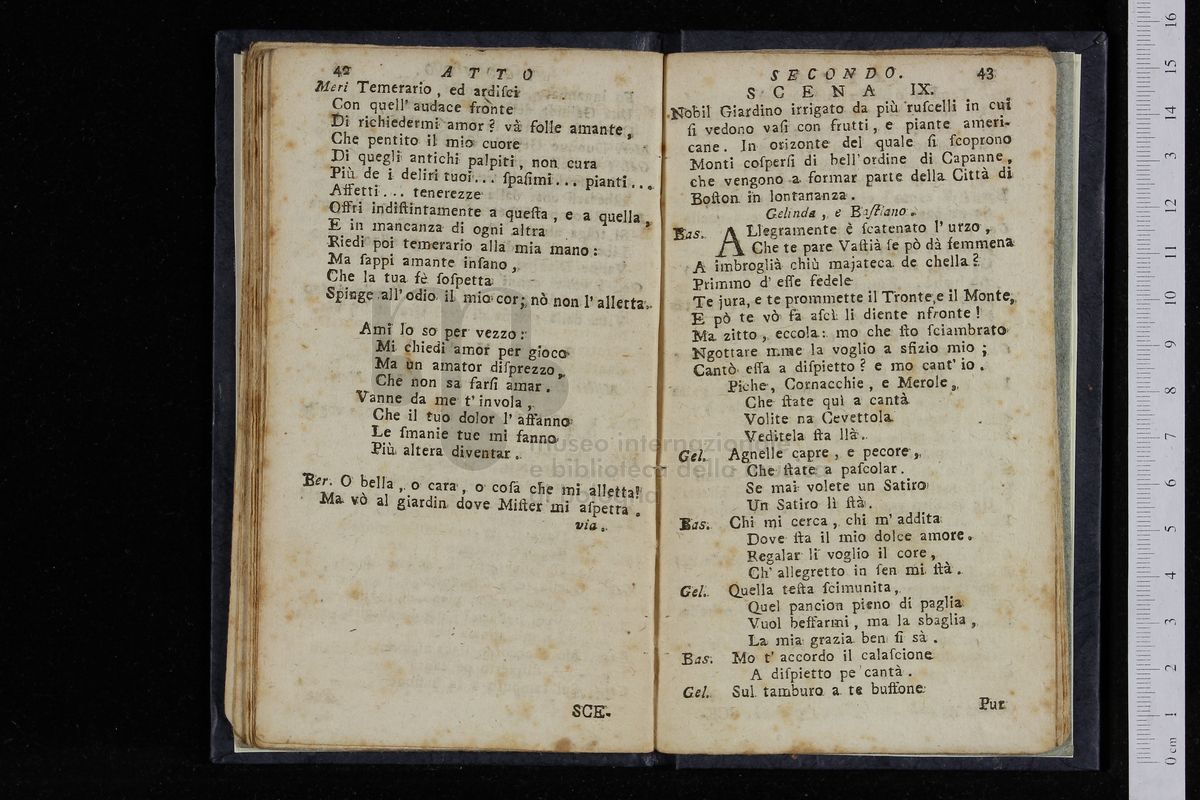 42 ATTO
Meri Temerario, ed ardiſci
Con quell' audace fronte
Di richiedermi amor? và folle amante,
Che pentito il mio cuore
Di quegli antichi palpiti, non cura
Più de i deliri tuoi... ſpaſimi... pianti...
Affetti... tenerezze
Offri indiſtintamente a queſta, e a quella,
E in mancanza di ogni altra
Riedi poi temerario alla mia mano:
Ma ſappi amante inſano,
Che la tua fè ſoſpetta
Spinge all' odio il mio cor; nò non l' alletta.
Ami lo so per vezzo:
Mi chiedi amor per gioco
Ma un amator diſprezzo,
Che non sa farſi amar.
Vanne da me t' invola,
Che il tuo dolor l' affanno
Le ſmanie tue mi fanno
Più altera diventar.
Ber. O bella, o cara, o coſa che mi alletta!
Ma vò al giardin dove Miſter mi aſpetta.
via.
SCE-
SECONDO. 43
SCENA IX.
Nobil Giardino irrigato da più ruſcelli in cui
ſi vedono vaſi con frutti, e piante ameri-
cane. In orizonte del quale ſi ſcoprono
Monti coſperſi di bell' ordine di Capanne,
che vengono a formar parte della Città di
Boſton in lontananza.
Gelinda, e Baſtiano.
Bas. ALlegramente è ſcatenato l' urzo,
Che te pare Vaſtià ſe pò dà femmena
A imbroglià chiù majateca de chella?
Primmo d' eſſe fedele
Te jura, e te prommette il Tronte, e il Monte,
E pò te vò fa aſcì li diente nfronte!
Ma zitto, eccola: mo che ſto ſciambrato
Ngottare mme la voglio a sfizio mio;
Cantò eſſa a diſpietto? e mo cant' io.
Piche, Cornacchie, e Merole,
Che ſtate quì a cantà
Volite na Cevettola
Veditela ſta llà.
Gel. Agnelle capre, e pecore,
Che ſtate a paſcolar.
Se mai volete un Satiro
Un Satiro lì ſtà.
Bas. Chi mi cerca, chi m' addita
Dove ſta il mio dolce amore.
Regalar li voglio il core,
Ch' allegretto in ſen mi ſtà.
Gel. Quella teſta ſcimunita,
Quel pancion pieno di paglia
Vuol beffarmi, ma la sbaglia,
La mia grazia ben ſi sà.
Bas. Mo t' accordo il calaſcione
A diſpietto pe cantà.
Gel. Sul tamburo a te buffone
Pur
museo internazionale
e biblioteca della musica
di bologna
0 cm 1 2 3 4 5 6 7 8 9 10 11 12 13 14 15 16